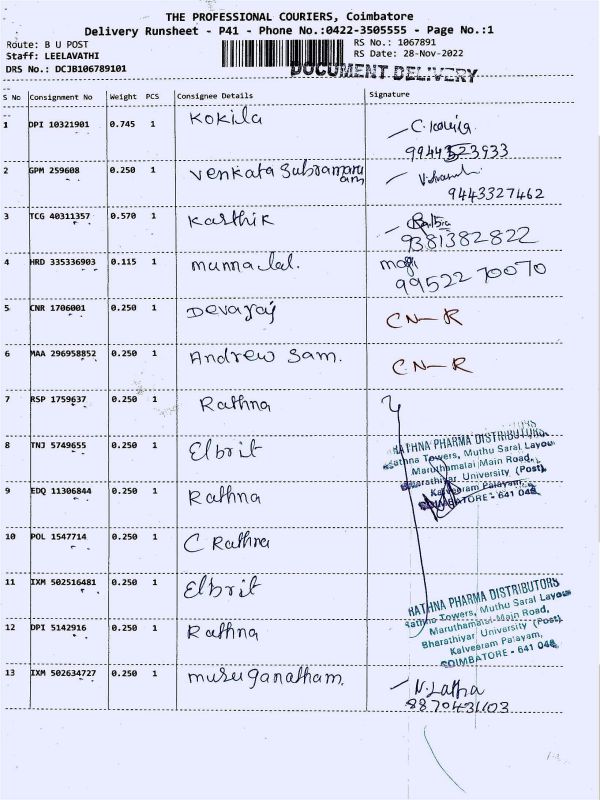 THE PROFESSIONAL COURIERS, Coimbatore
Delivery Runsheet - P41 - Phone No.:0422-3505555 - Page No.:1
Route: B U POST
RS No.: 1067891
Staff: LEELAVATHI
RS Date: 28-Nov-2022
DRS No.: DCJB106789101
DOCUMENT DELIVERY
S No Consignment No Weight PCS Consignee Details Signature
1 DPI 10321901 0.745 1 Kokila
9944523933
2 GPM 259608 0.250 1 Venkata Subramani
am
9443327462
3 TCG 40311357 0.570 1 Karthik
9381382822
4 HRD 335336903 0.115 1 munna lal.
99522 70070
5 CNR 1706001 0.250 1 Devaraj CN-R
6 MAA 296958852 0.250 1 Andrew Sam. CN-R
7 RSP 1759637 0.250 1 Rathna
8 TNJ 5749655 0.250 1 Elbrit
RATHNA PHARMA DISTRIBUTORS
Rathna Towers, Muthu Saral Layout
Maruthamalai Main Road,
Bharathiyar University (Post)
Kalveeram Palayam,
COIMBATORE - 641 046
9 EDQ 11306844 0.250 1 Rathna
10 POL 1547714 0.250 1 C Rathna
11 IXM 502516481 0.250 1 Elbrit
RATHNA PHARMA DISTRIBUTORS
Rathna Towers, Muthu Saral Layout
Maruthamalai Main Road,
Bharathiyar University (Post)
Kalveeram Palayam,
COIMBATORE - 641 046
12 DPI 5142916 0.250 1 Rathna
13 IXM 502634727 0.250 1 muruganatham. N. Latha
8870431103